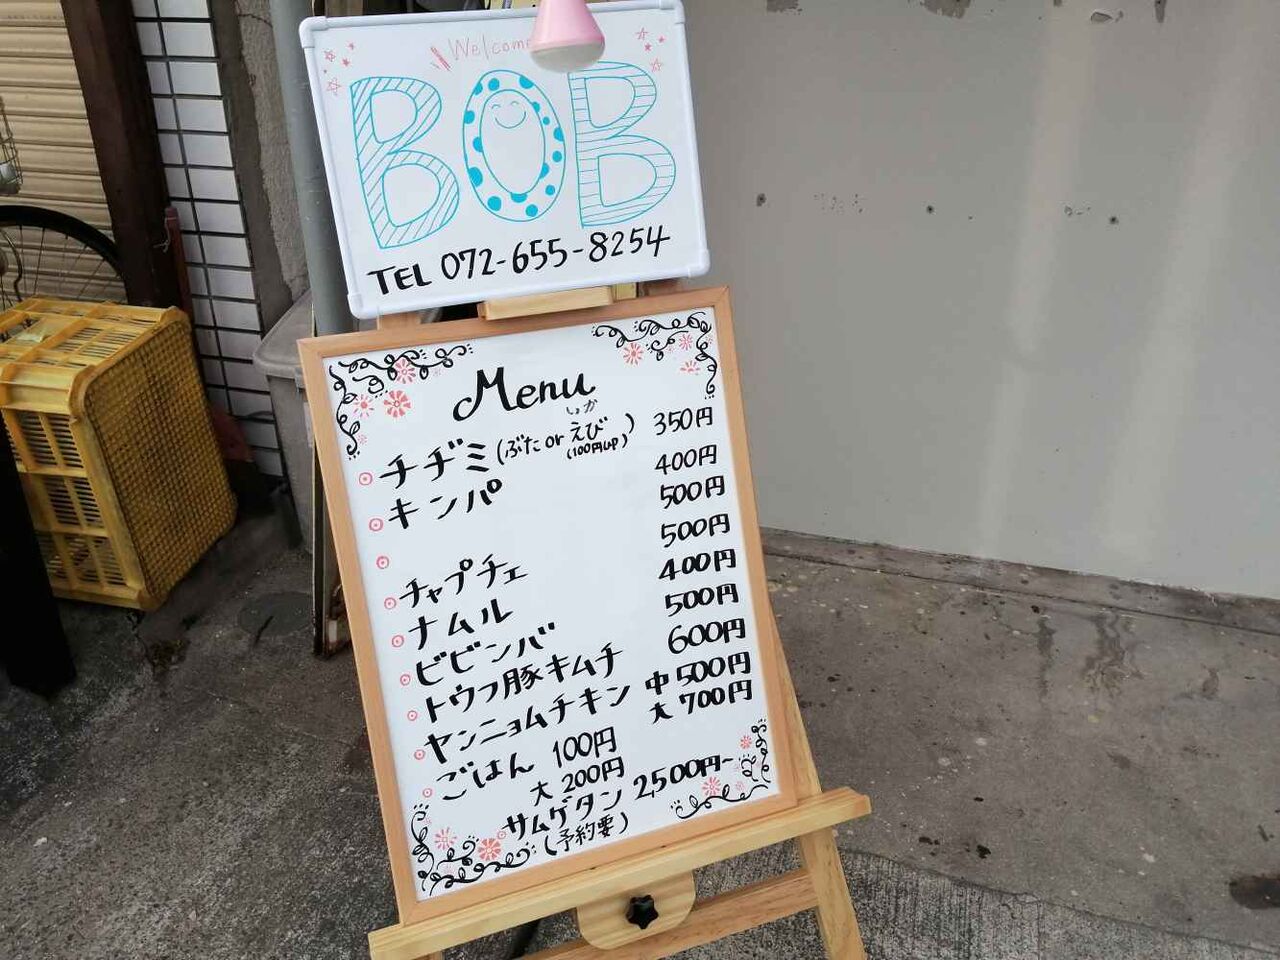 Welcome
BOB
TEL 072-655-8254
Menu
チヂミ(ぶた or いか えび) 350円
(100円up)
キンパ 400円
500円
チャプチェ 500円
ナムル 400円
ビビンバ 500円
トウフ豚キムチ 600円
ヤンニョムチキン 中 500円
大 700円
ごはん 100円
大 200円
サムゲタン 2,500円~
(予約要)